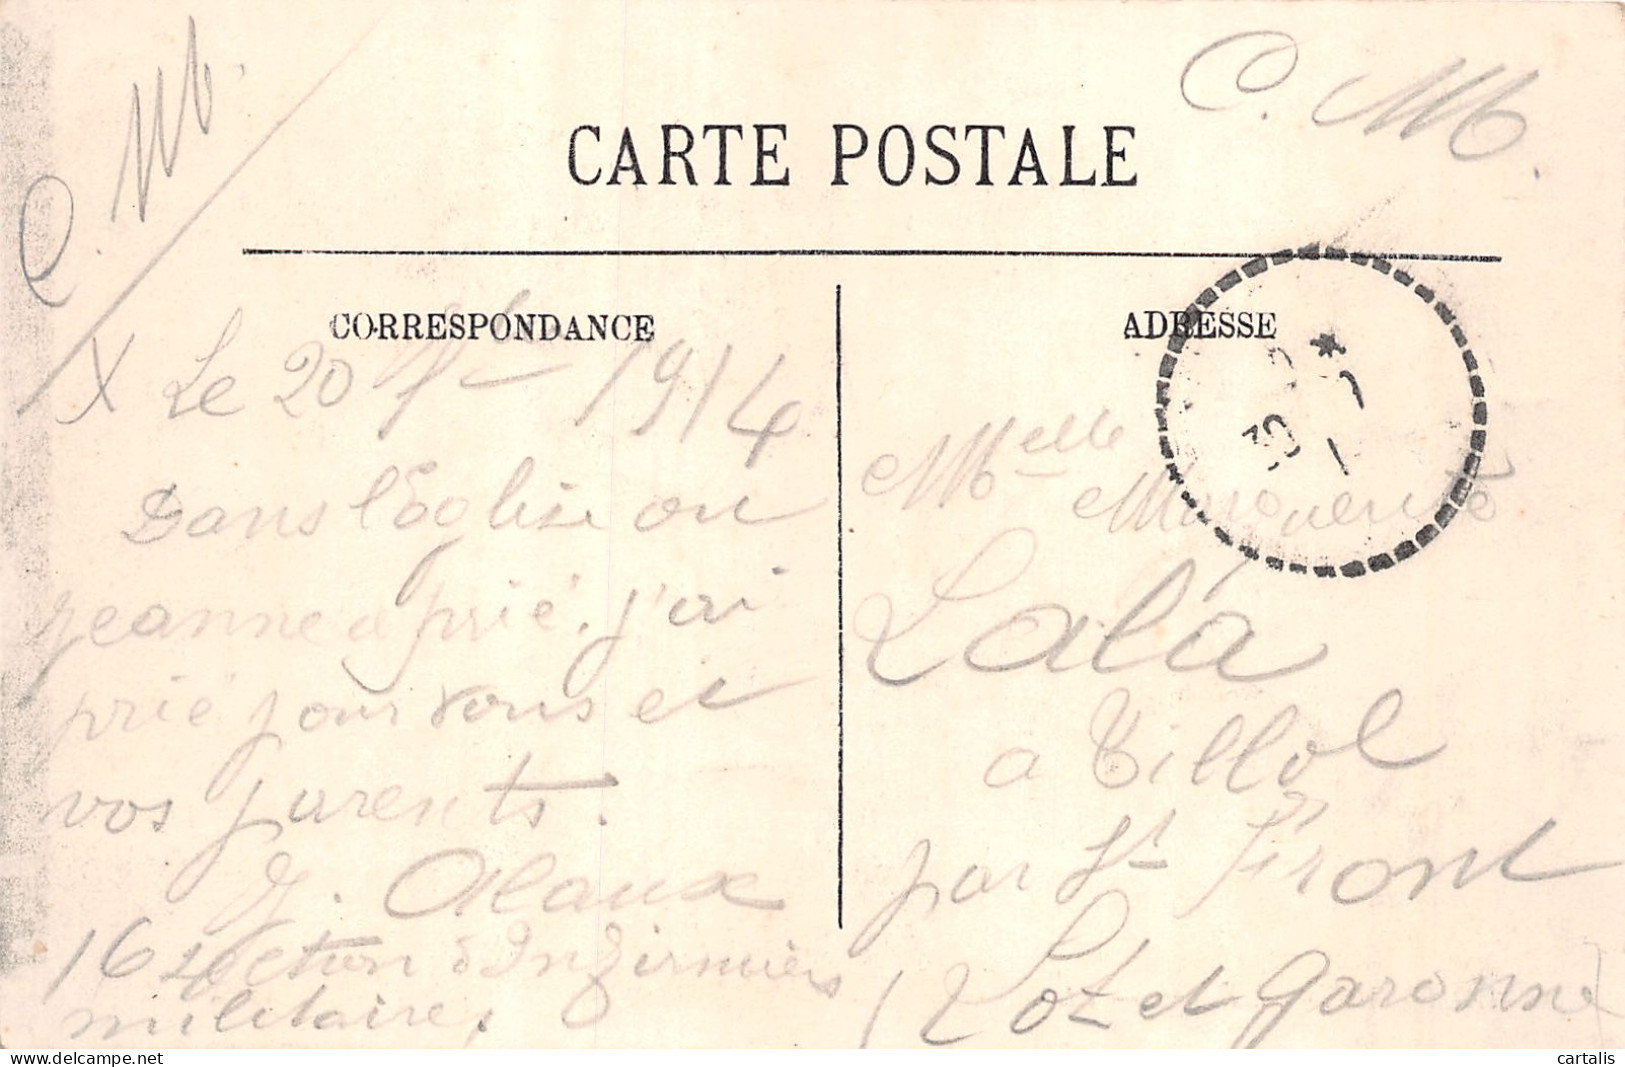 C. M.
C. M.
CARTE POSTALE
CORRESPONDANCE
ADRESSE
X Le 20 7bre 1914
Dans l'Eglise ou
Jeanne a prié, j'ai
prié pour vous et
vos parents.
J. Alaux
16 section d'Infirmiers
militaires
Melle Marguerite
Lala
a Tillol
par St Front
(Lot et Garonne)
delcampe.net
cartalis